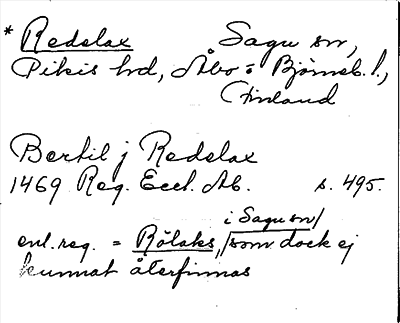 * Redelax Sagu sn,
Pikis hd, Åbo o Björneb. l.,
Finland
Bertil j Redelax
1469 Reg. Eccl. Ab. s. 495.
i Sagu sn/
enl. reg. = Rölaks, /som dock ej
kunnat återfinnas